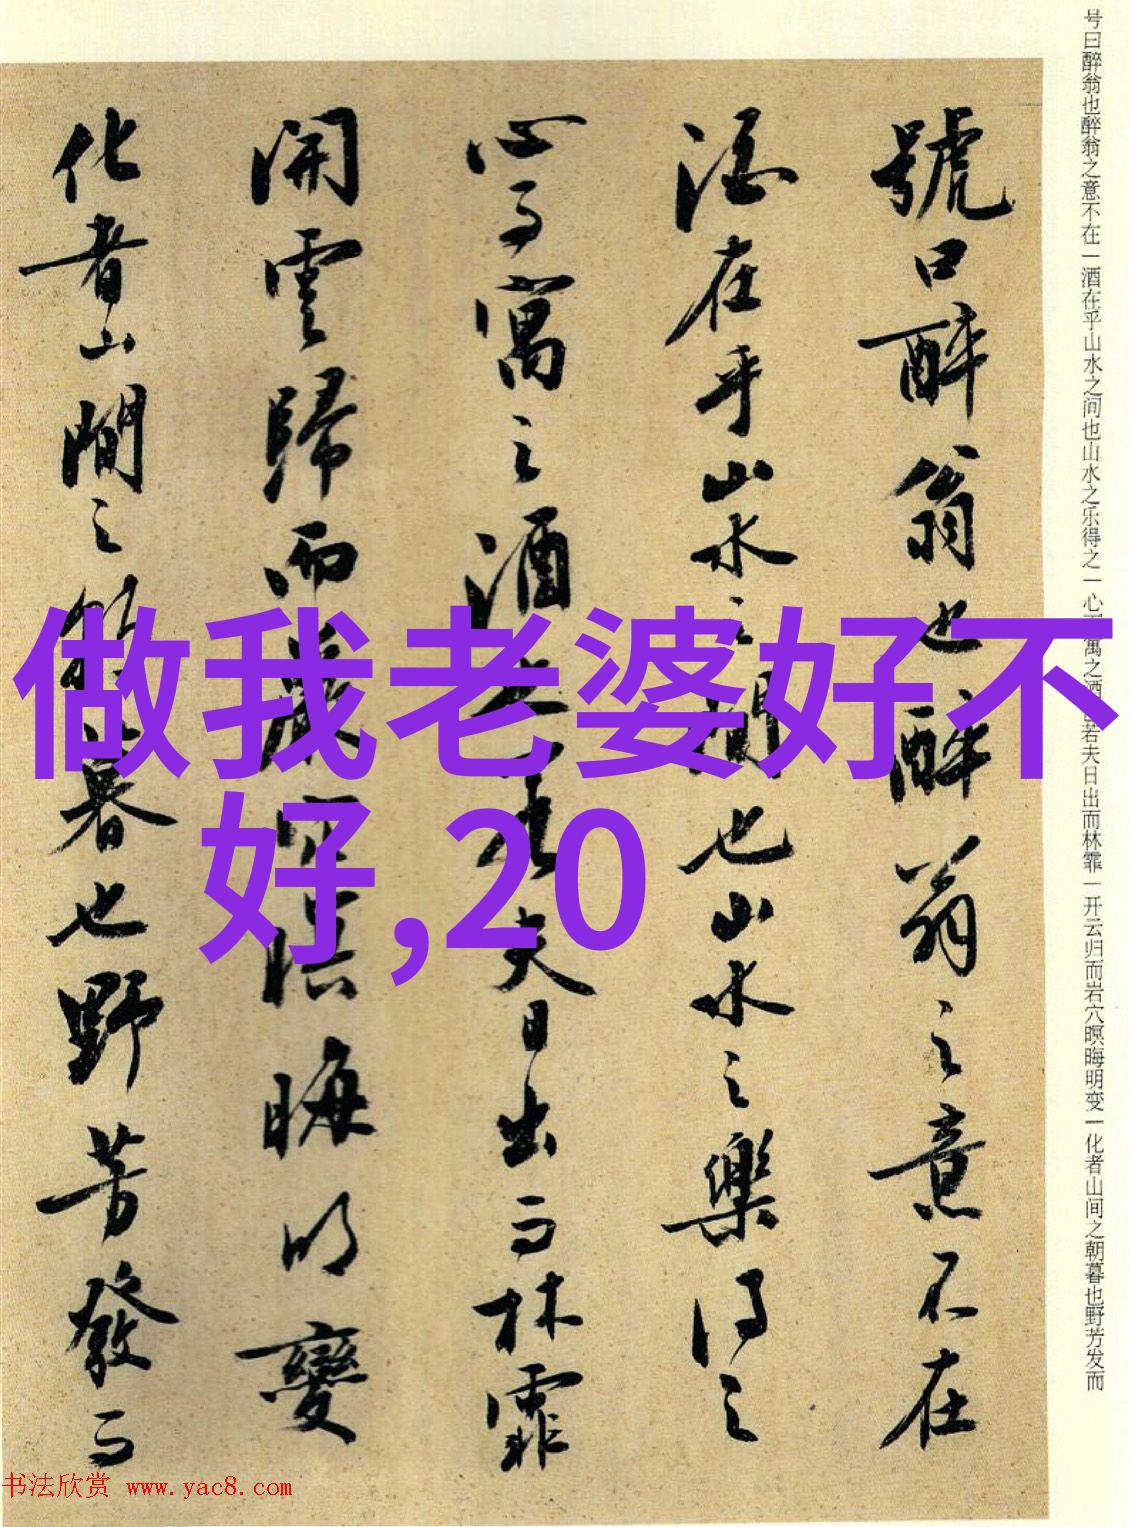 号曰醉翁也醉翁之意不在一酒在乎山水之间也山水之乐得之一心而寓之酒也若夫日出而林霏一开云归而岩穴暝晦明变一化者山间之朝暮也野芳发而
號曰醉翁也醉翁之意不在
酒在乎山水之間也山水之樂得之
心而寓之酒也若夫日出而林霏
開雲歸而巖穴暝晦明變
化者山間之朝暮也野芳發而
做我老婆好不
好,20
书法欣赏 www.yac8.com